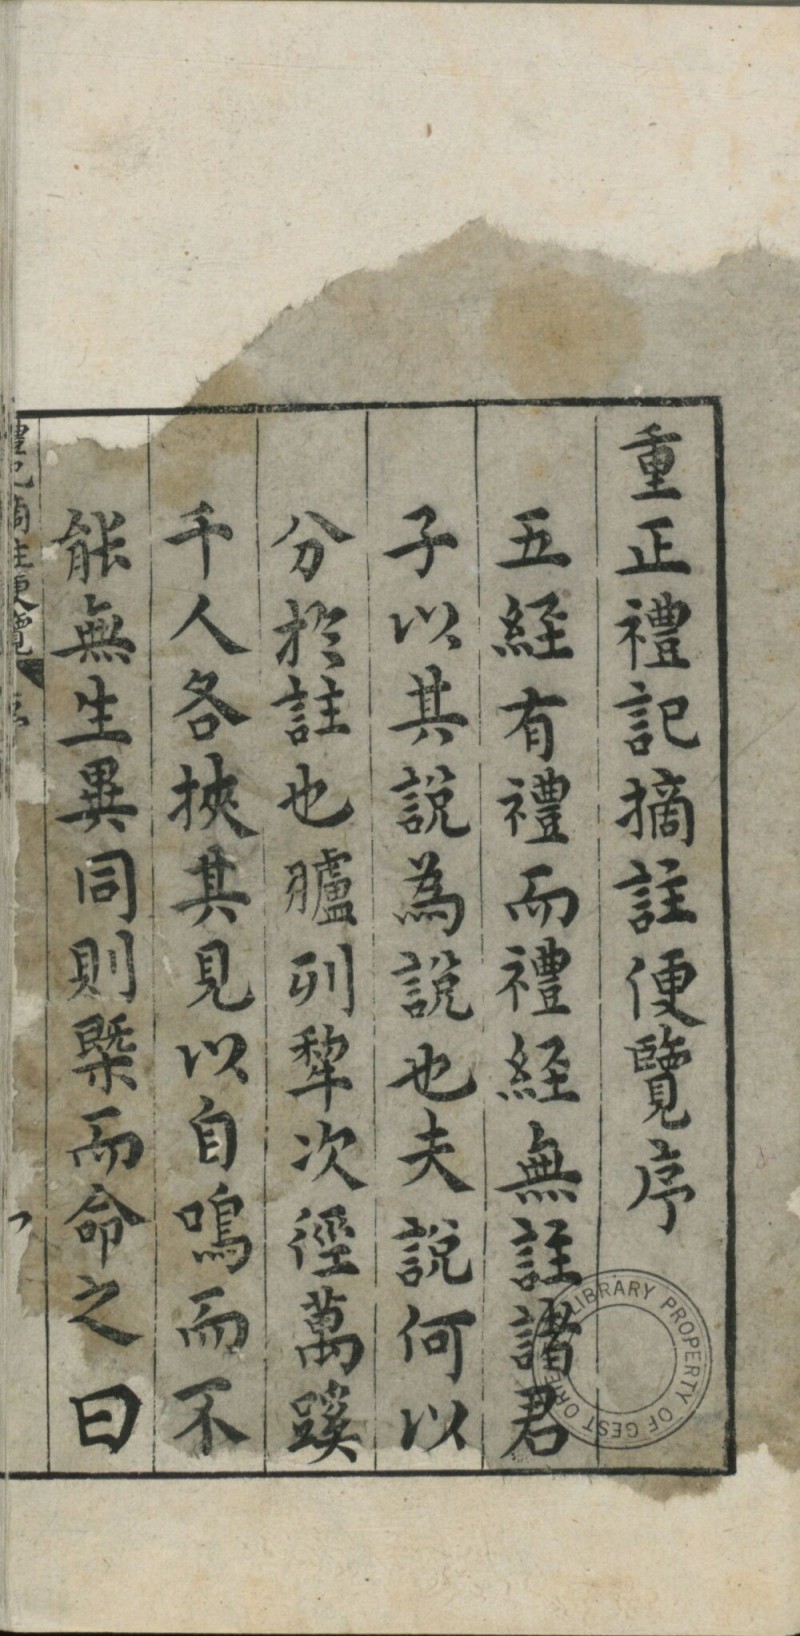 重正禮記摘註便覽序
五経有禮而禮経無註諸君
子以其說為說也夫說何以
分於註也臚列犂次徑萬蹊
千人各挾其見以自鳴而不
能無生異同則槩而命之曰
禮記摘註便覽
LIBRARY PROPERTY OF GEST ORIE